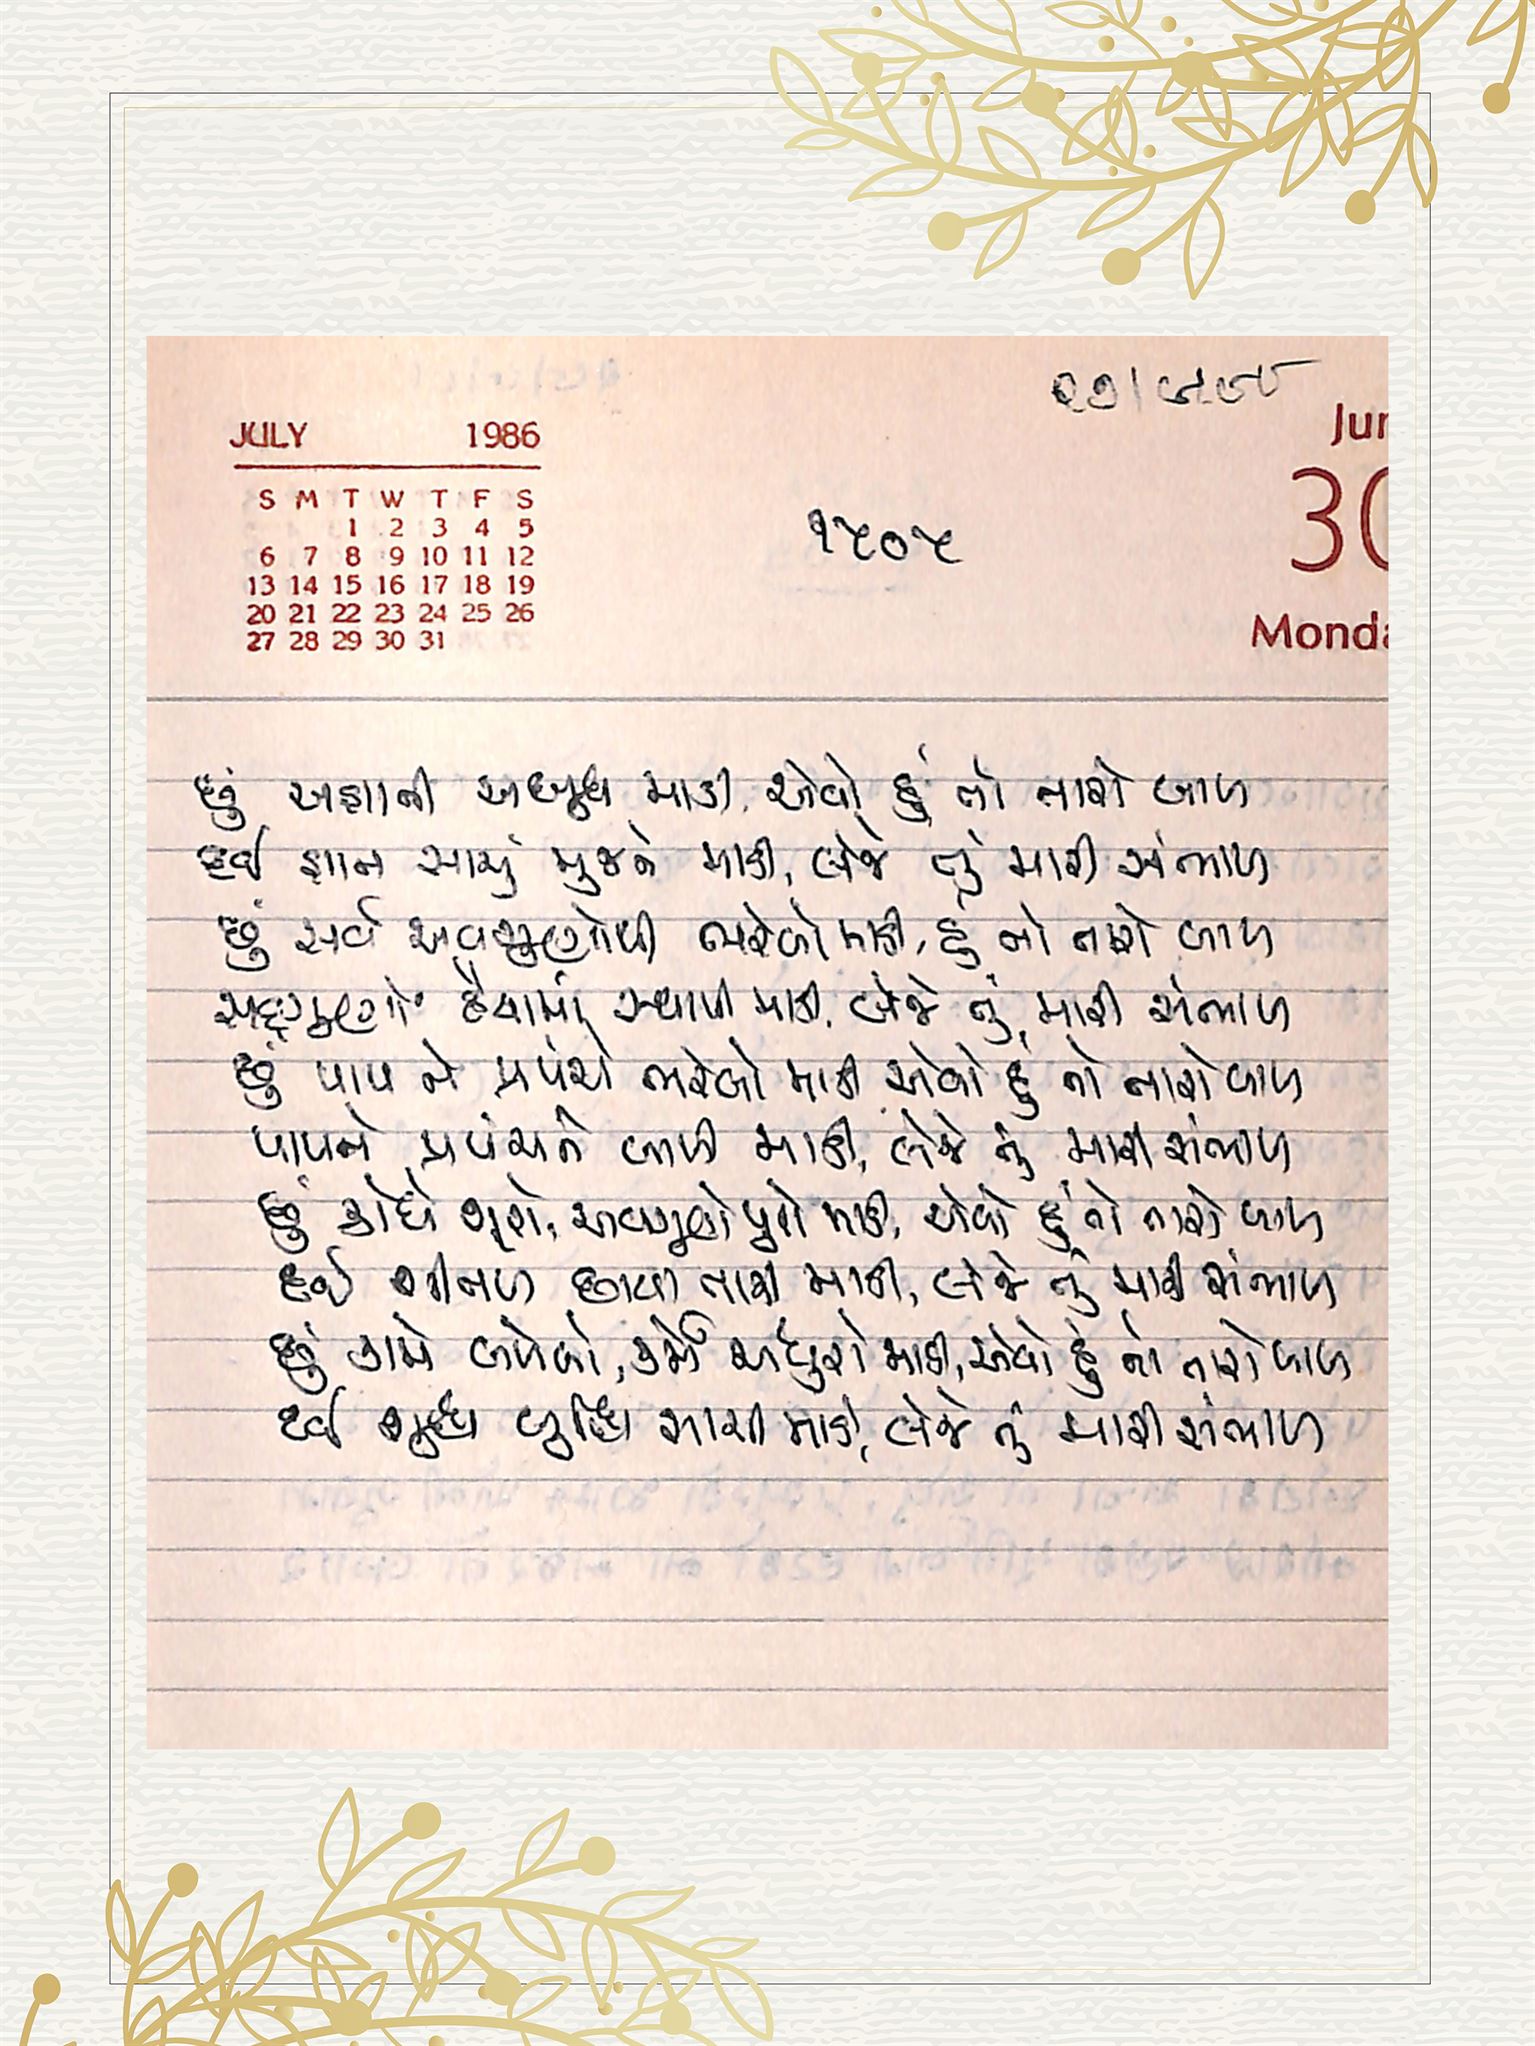 JULY 1986
Jun
30
Monda
S M T W T F S
1 2 3 4 5
6 7 8 9 10 11 12
13 14 15 16 17 18 19
20 21 22 23 24 25 26
27 28 29 30 31
૧૫૦૫
છું અજ્ઞાની અબુધ માડી, એવો હું તો તારો બાળ
દઈ જ્ઞાન સાચું મુજને માડી, લેજે તું મારી સંભાળ
છું સર્વ અવગુણોથી ભરેલો માડી, હું તો તારો બાળ
સદ્દગુણો હૈયામાં સ્થાપી માડી, લેજે તું મારી સંભાળ
છું પાપ ને પ્રપંચે ભરેલો માડી એવો હું તો તારો બાળ
પાપને પ્રપંચને બાળી માડી, લેજે તું મારી સંભાળ
છું ક્રોધે શૂરો, અવગુણે પુરો માડી, એવો હું તો તારો બાળ
દઈ શીતળ છાયા તારી માડી, લેજે તું મારી સંભાળ
છું કામે બળેલો, કર્મે અધુરો માડી, એવો હું તો તારો બાળ
દઈ શુદ્ધ બુદ્ધિ સાચી માડી, લેજે તું મારી સંભાળ